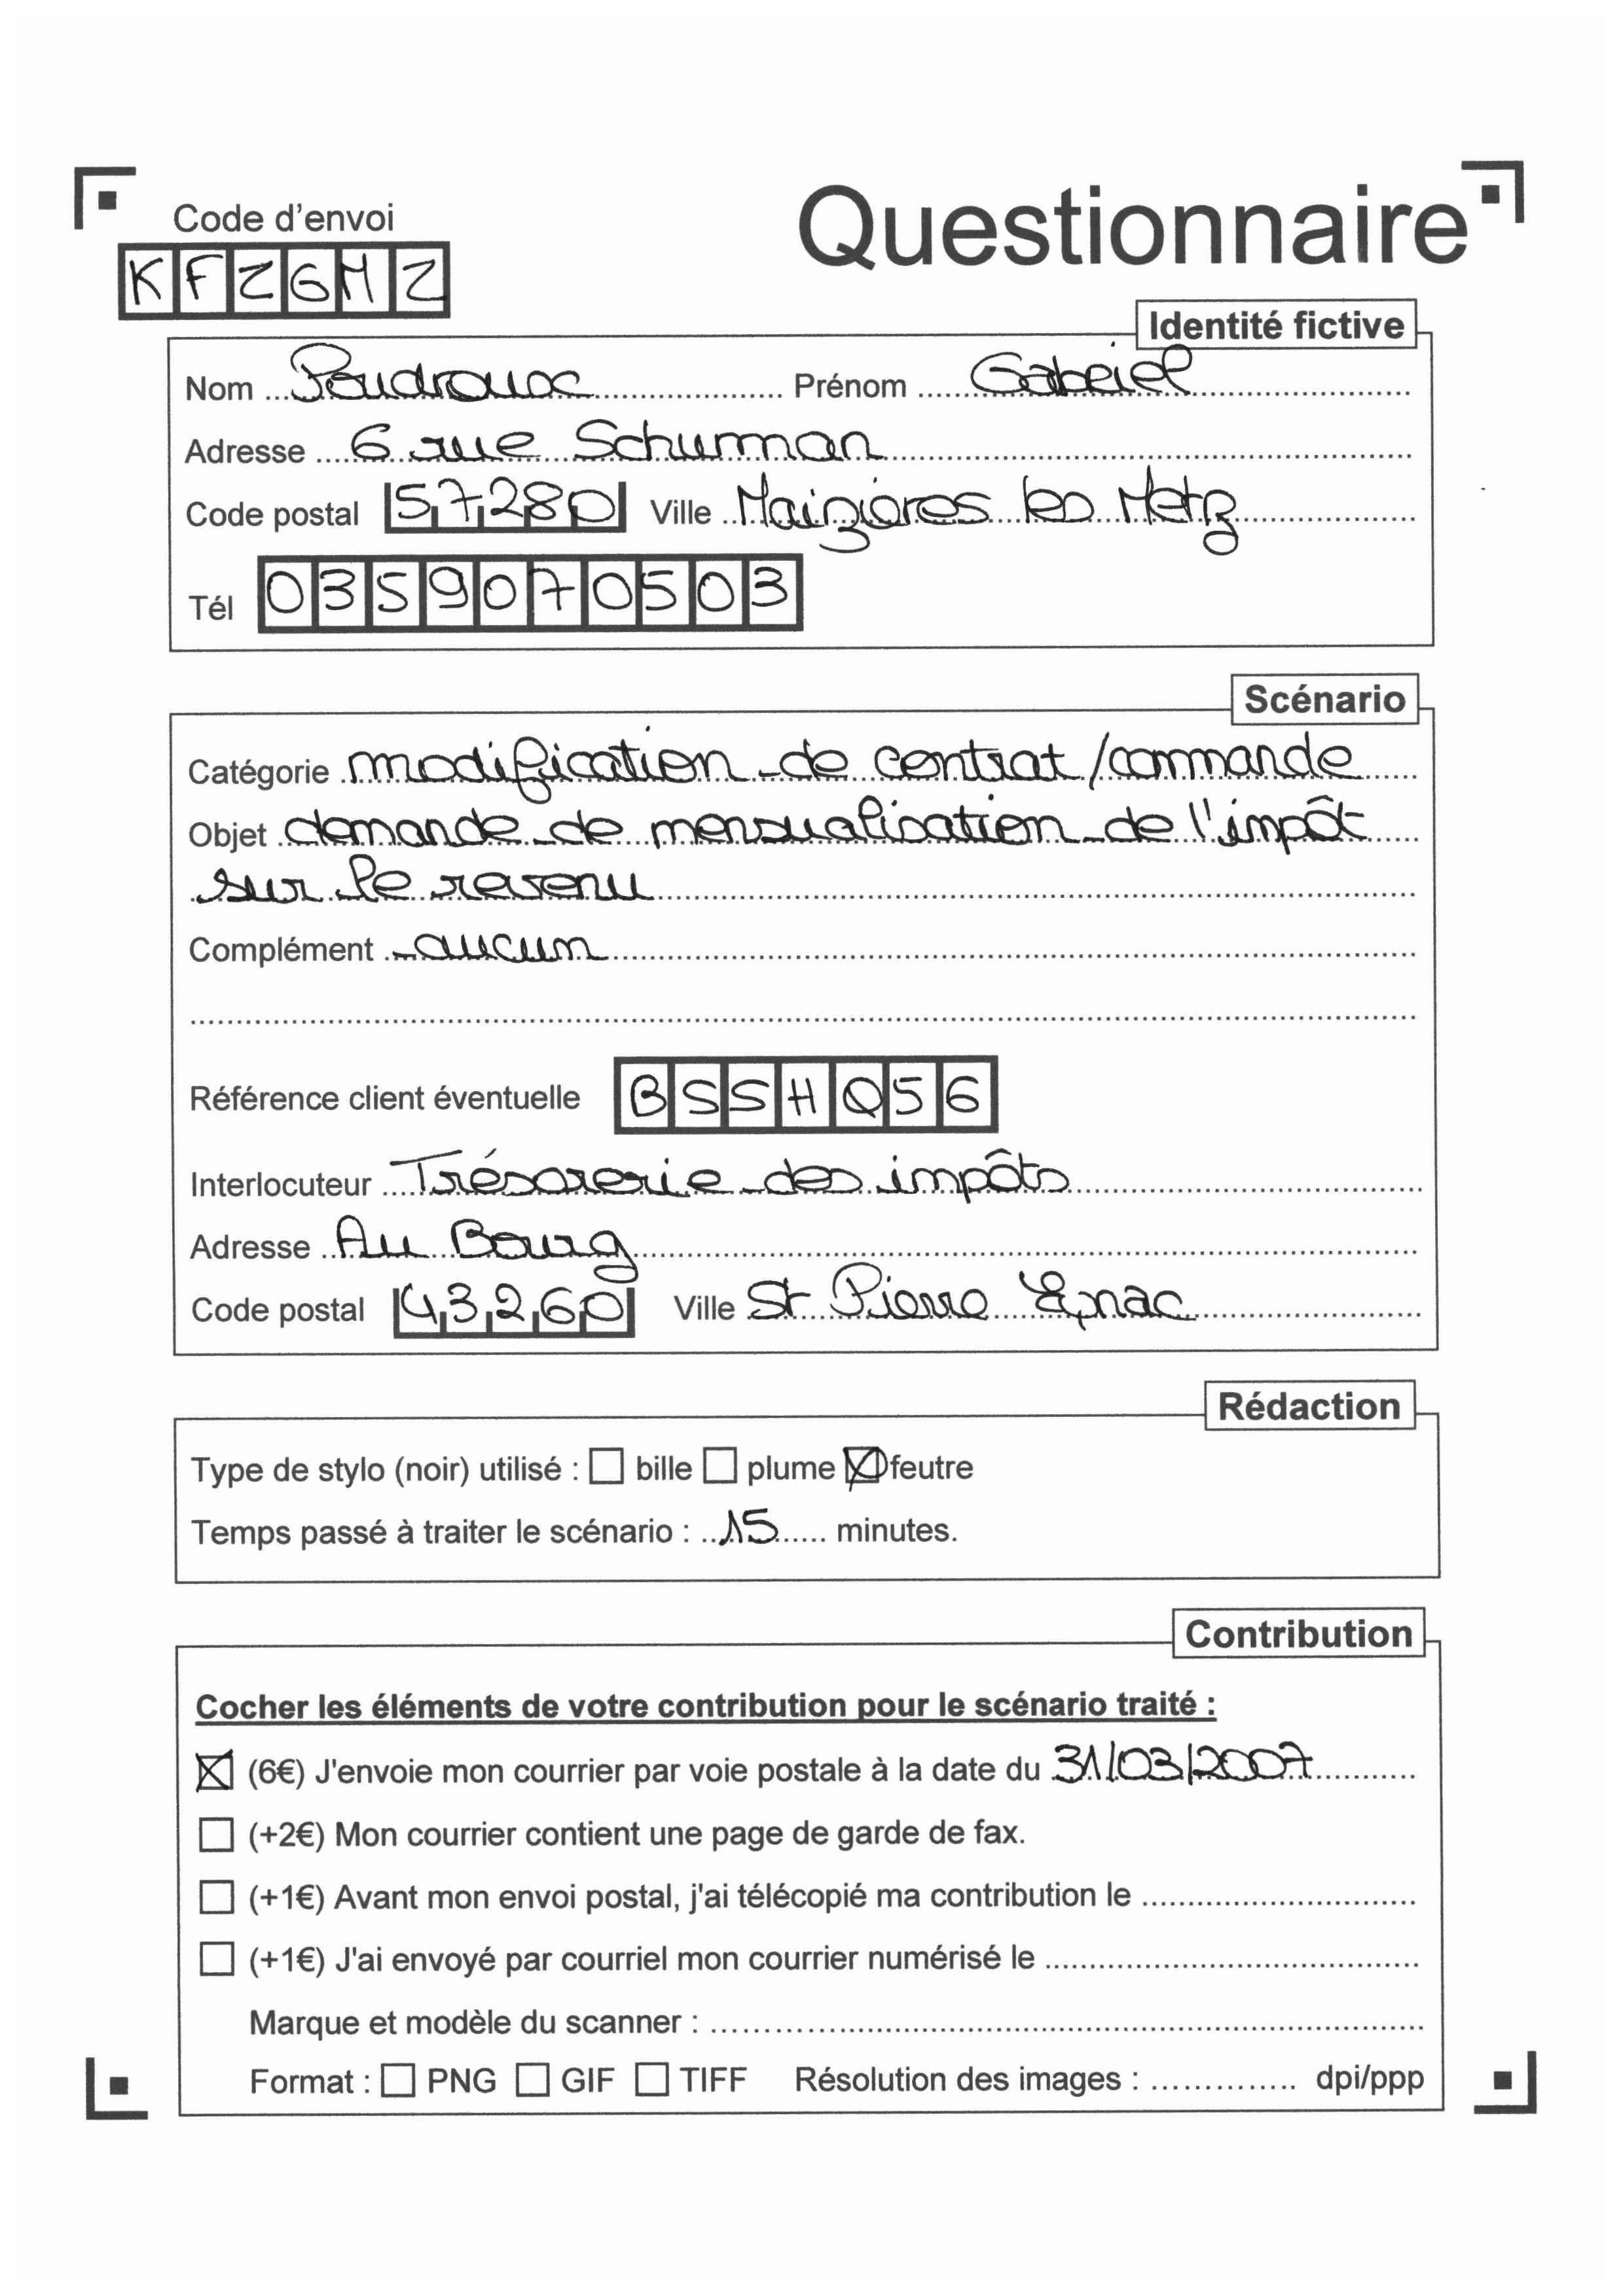 Code d'envoi
Questionnaire
KFZGMZ
Identité fictive
Nom Poudroux Prénom Gabriel
Adresse 6 rue Schuman
Code postal 57280 Ville Maizières les Metz
Tél 0359070503
Scénario
Catégorie modification de contrat / commande
Objet demande de mensualisation de l'impôt
sur le revenu
Complément aucun
Référence client éventuelle BSSHQ56
Interlocuteur Trésorerie des impôts
Adresse Au Bourg
Code postal 43260 Ville St Pierre Eynac
Rédaction
Type de stylo (noir) utilisé : bille plume feutre
Temps passé à traiter le scénario : 15 minutes.
Contribution
Cocher les éléments de votre contribution pour le scénario traité :
(6€) J'envoie mon courrier par voie postale à la date du 31/03/2007
(+2€) Mon courrier contient une page de garde de fax.
(+1€) Avant mon envoi postal, j'ai télécopié ma contribution le
(+1€) J'ai envoyé par courriel mon courrier numérisé le
Marque et modèle du scanner :
Format : PNG GIF TIFF Résolution des images : dpi/ppp